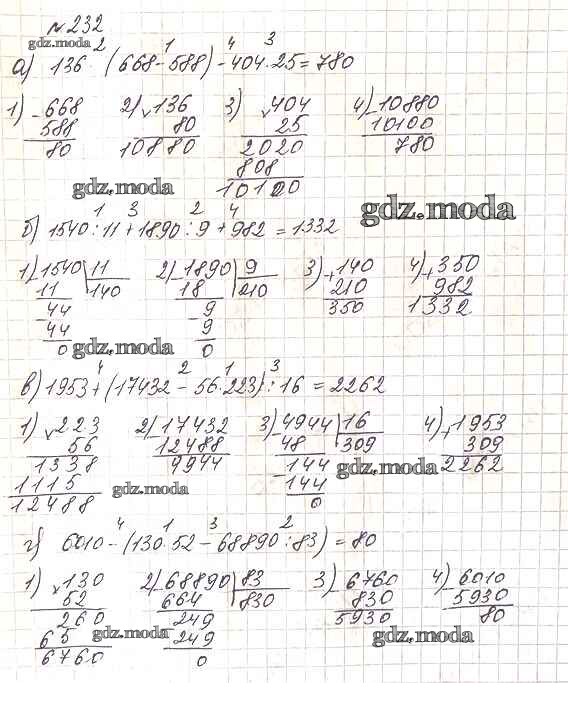 №232
gdz.moda
2 1 4 3
а) 136 · (668 - 588) - 404 · 25 = 780
1) - 668 2) × 136 3) × 404 4) - 10880
588 80 25 10100
80 10880 2020 780
808
10100
gdz.moda
gdz.moda
1 3 2 4
б) 1540 : 11 + 1890 : 9 + 982 = 1332
1) - 1540 11 2) - 1890 9 3) + 140 4) + 350
11 140 18 210 210 982
- 44 - 9 350 1332
44 9
0 0
gdz.moda
4 2 1 3
в) 1953 + (17432 - 56 · 223) : 16 = 2262
1) × 223 2) - 17432 3) - 4944 16 4) + 1953
56 12488 48 309 309
1338 9944 - 144 2262
1115 144
12488 0
gdz.moda gdz.moda
4 1 3 2
г) 6010 - (130 · 52 - 68890 : 83) = 80
1) × 130 2) - 68890 83 3) - 6760 4) - 6010
52 664 830 830 5930
260 - 249 5930 80
65 249
6760 0
gdz.moda gdz.moda